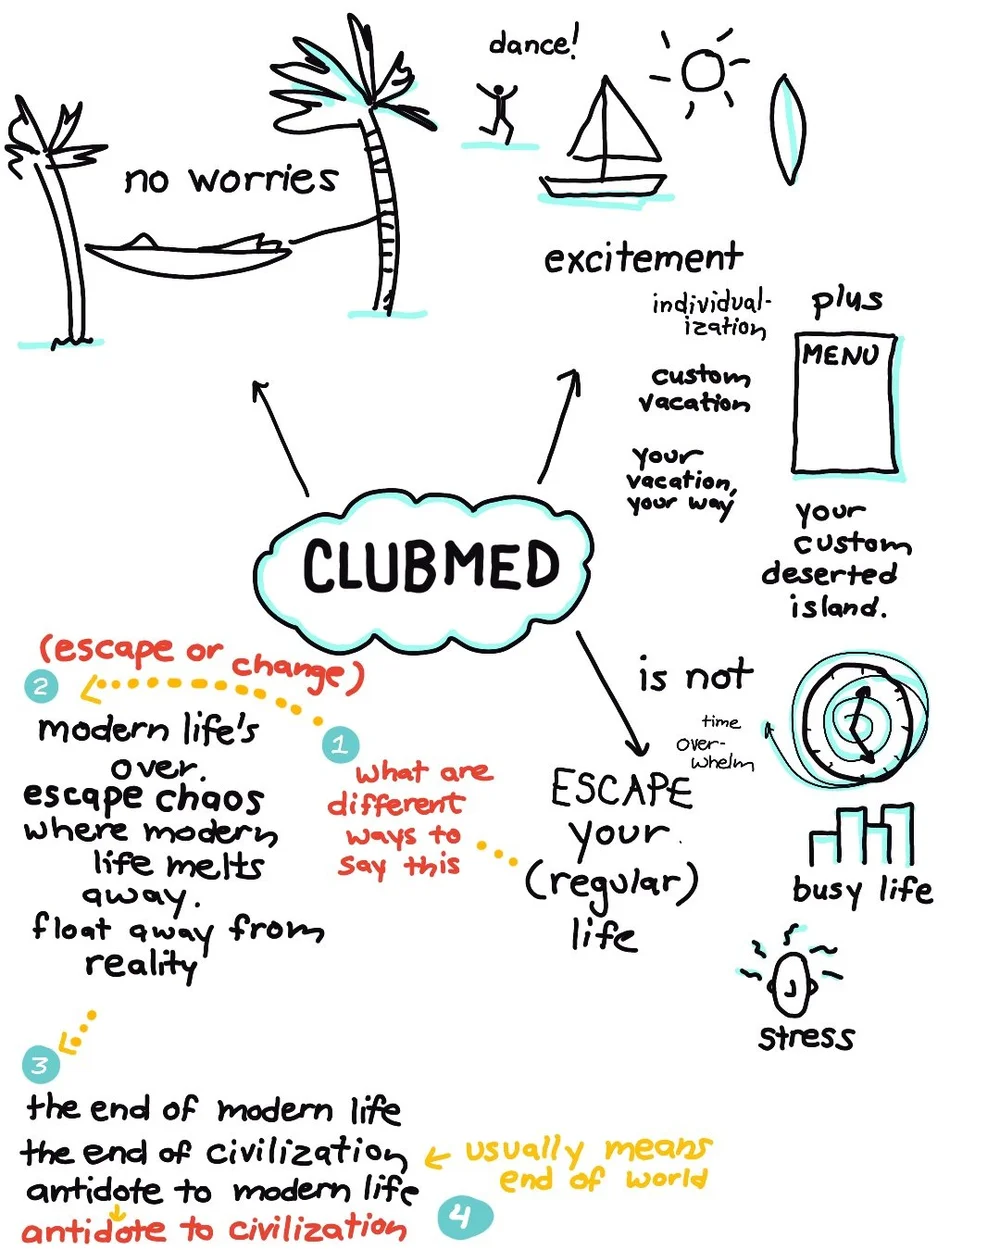 dance!
no worries
excitement
individual-
ization
plus
MENU
custom
vacation
your
vacation,
your way
your
custom
deserted
island.
CLUBMED
(escape or change)
2
modern life's
over.
escape chaos
where modern
life melts
away.
float away from
reality
1
what are
different
ways to
say this
is not
time
over-
whelm
ESCAPE
your
(regular)
life
busy life
stress
3
the end of modern life
the end of civilization
usually means
end of world
antidote to modern life
antidote to civilization
4